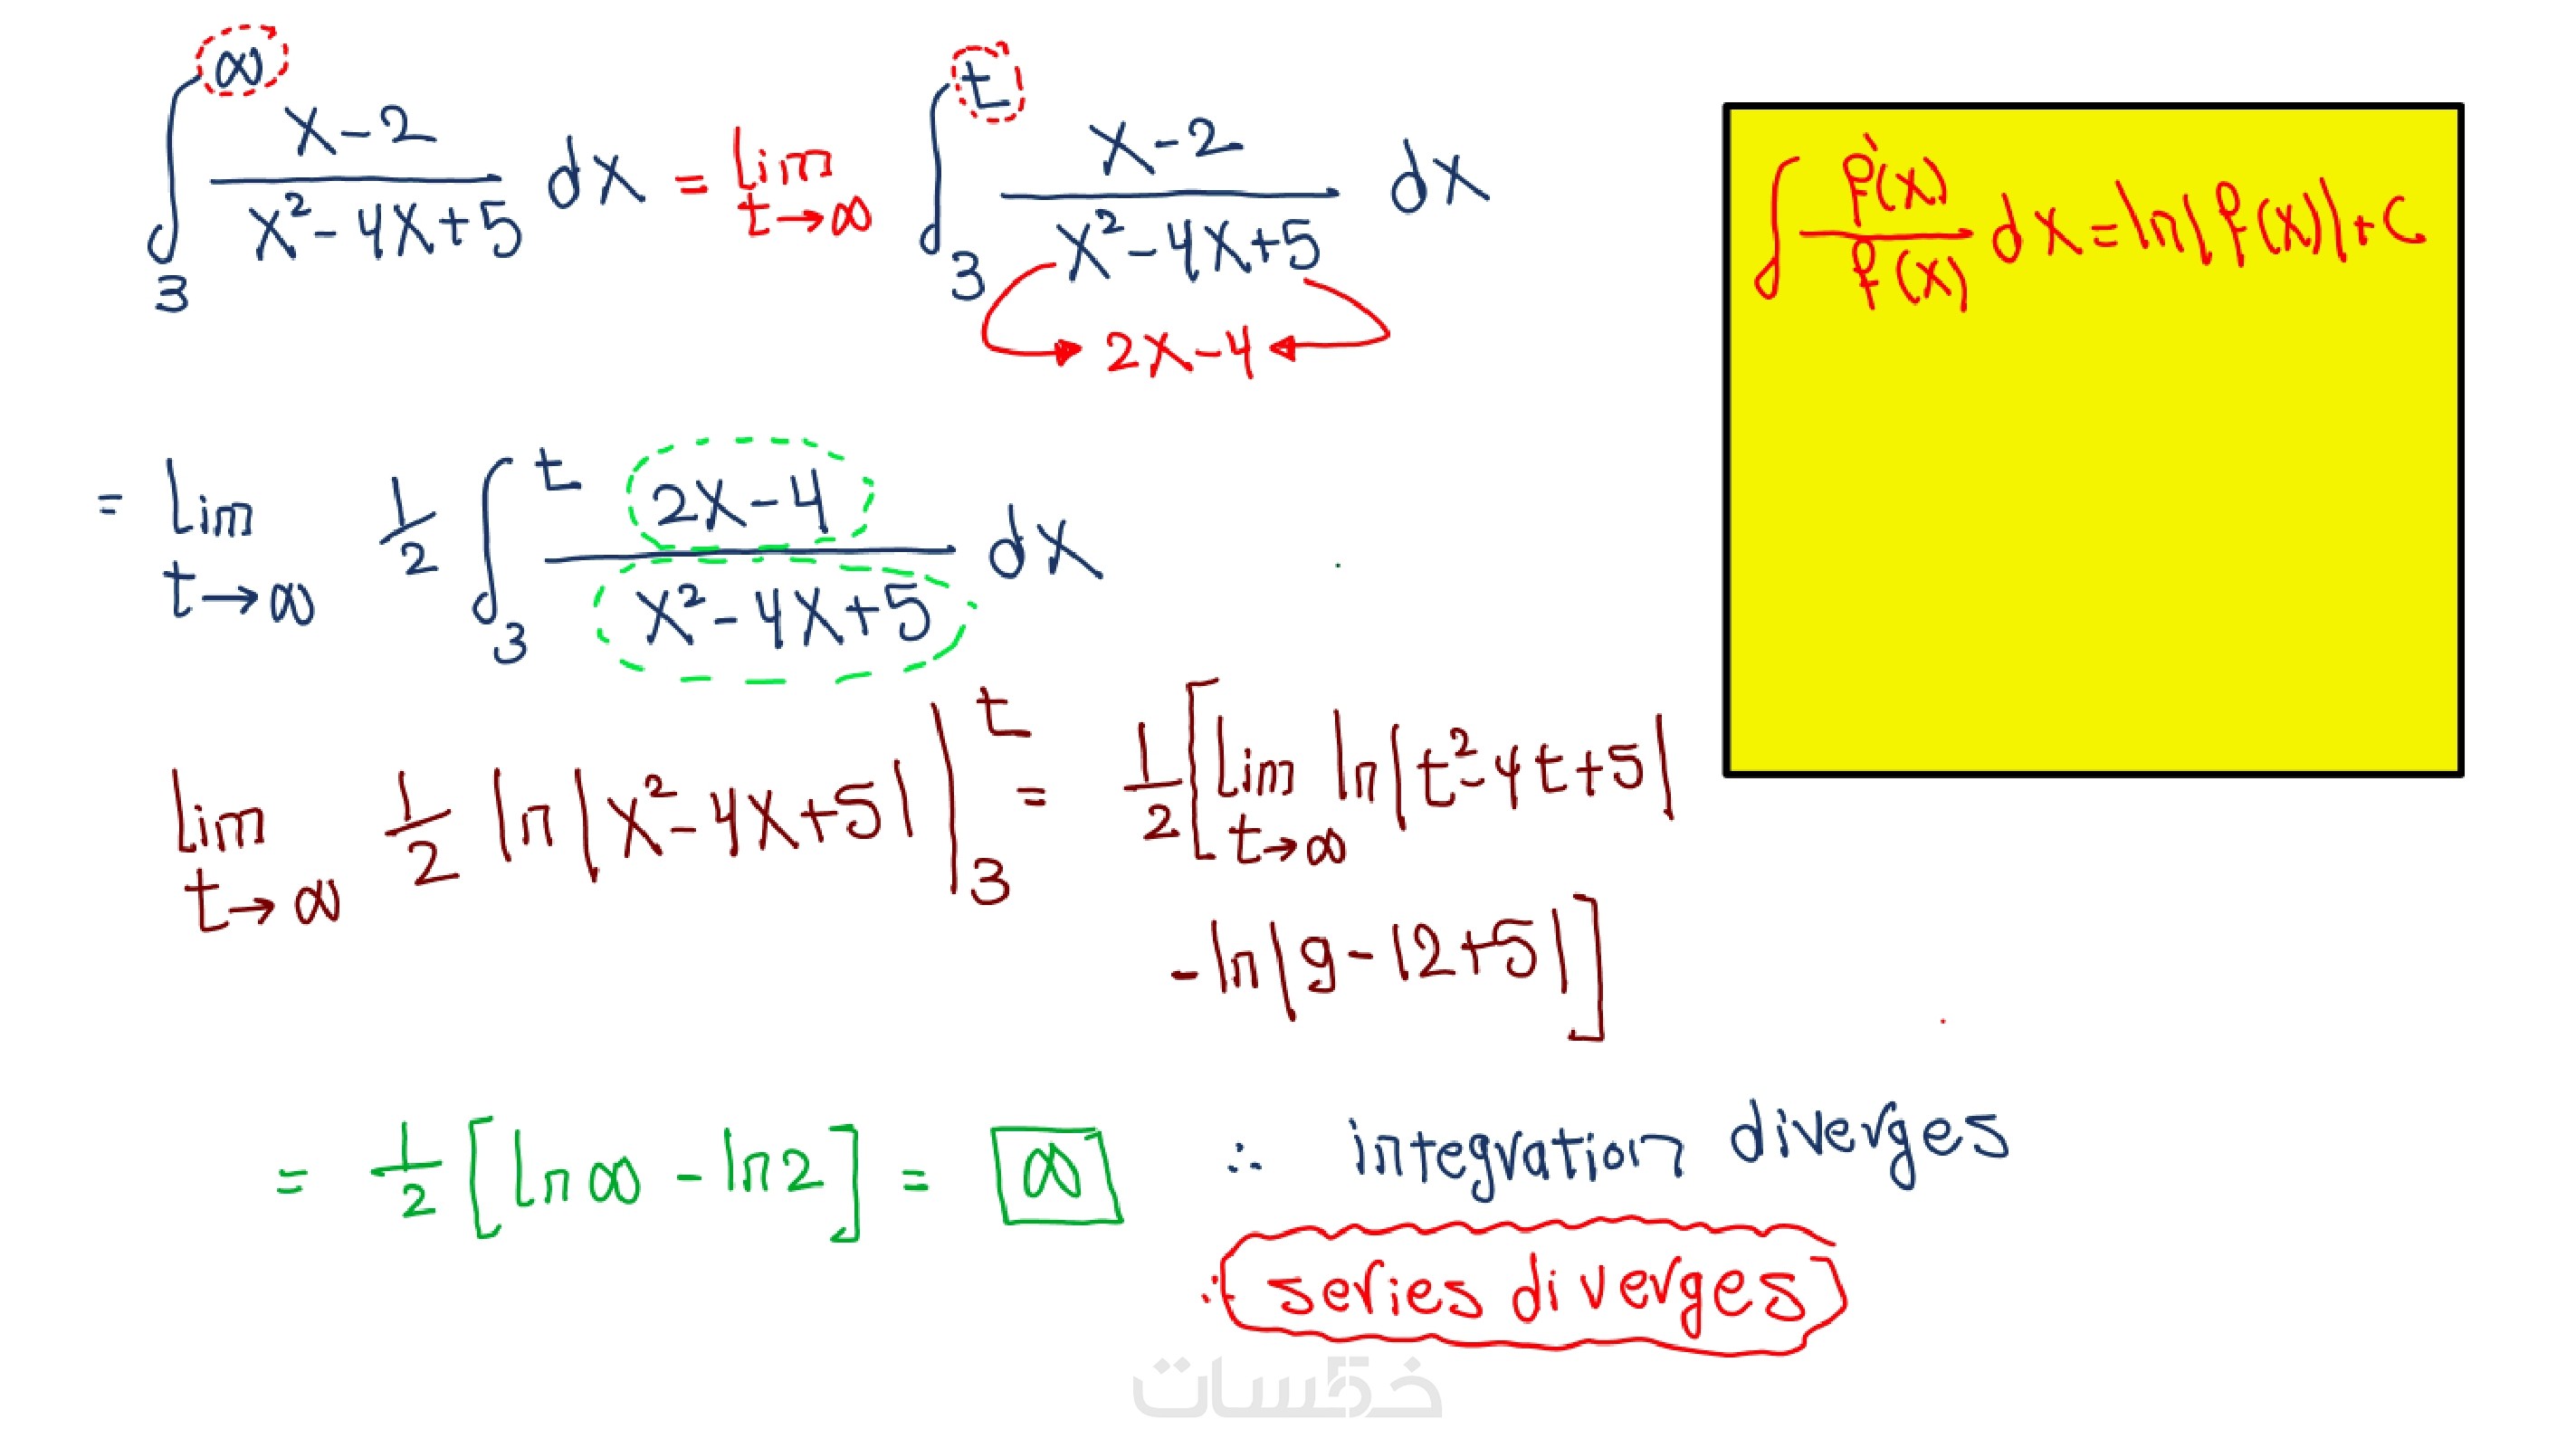 ∫₃^∞ (x-2)/(x²-4x+5) dx = lim t→∞ ∫₃^t (x-2)/(x²-4x+5) dx
2x-4
∫ f'(x)/f(x) dx = ln|f(x)|+c
= lim t→∞ 1/2 ∫₃^t (2x-4)/(x²-4x+5) dx
lim t→∞ 1/2 ln|x²-4x+5| |₃^t = 1/2 [lim t→∞ ln|t²-4t+5|
-ln|9-12+5|]
= 1/2 [ln∞ - ln2] = ∞ ∴ integration diverges
∴ series diverges
خمسات